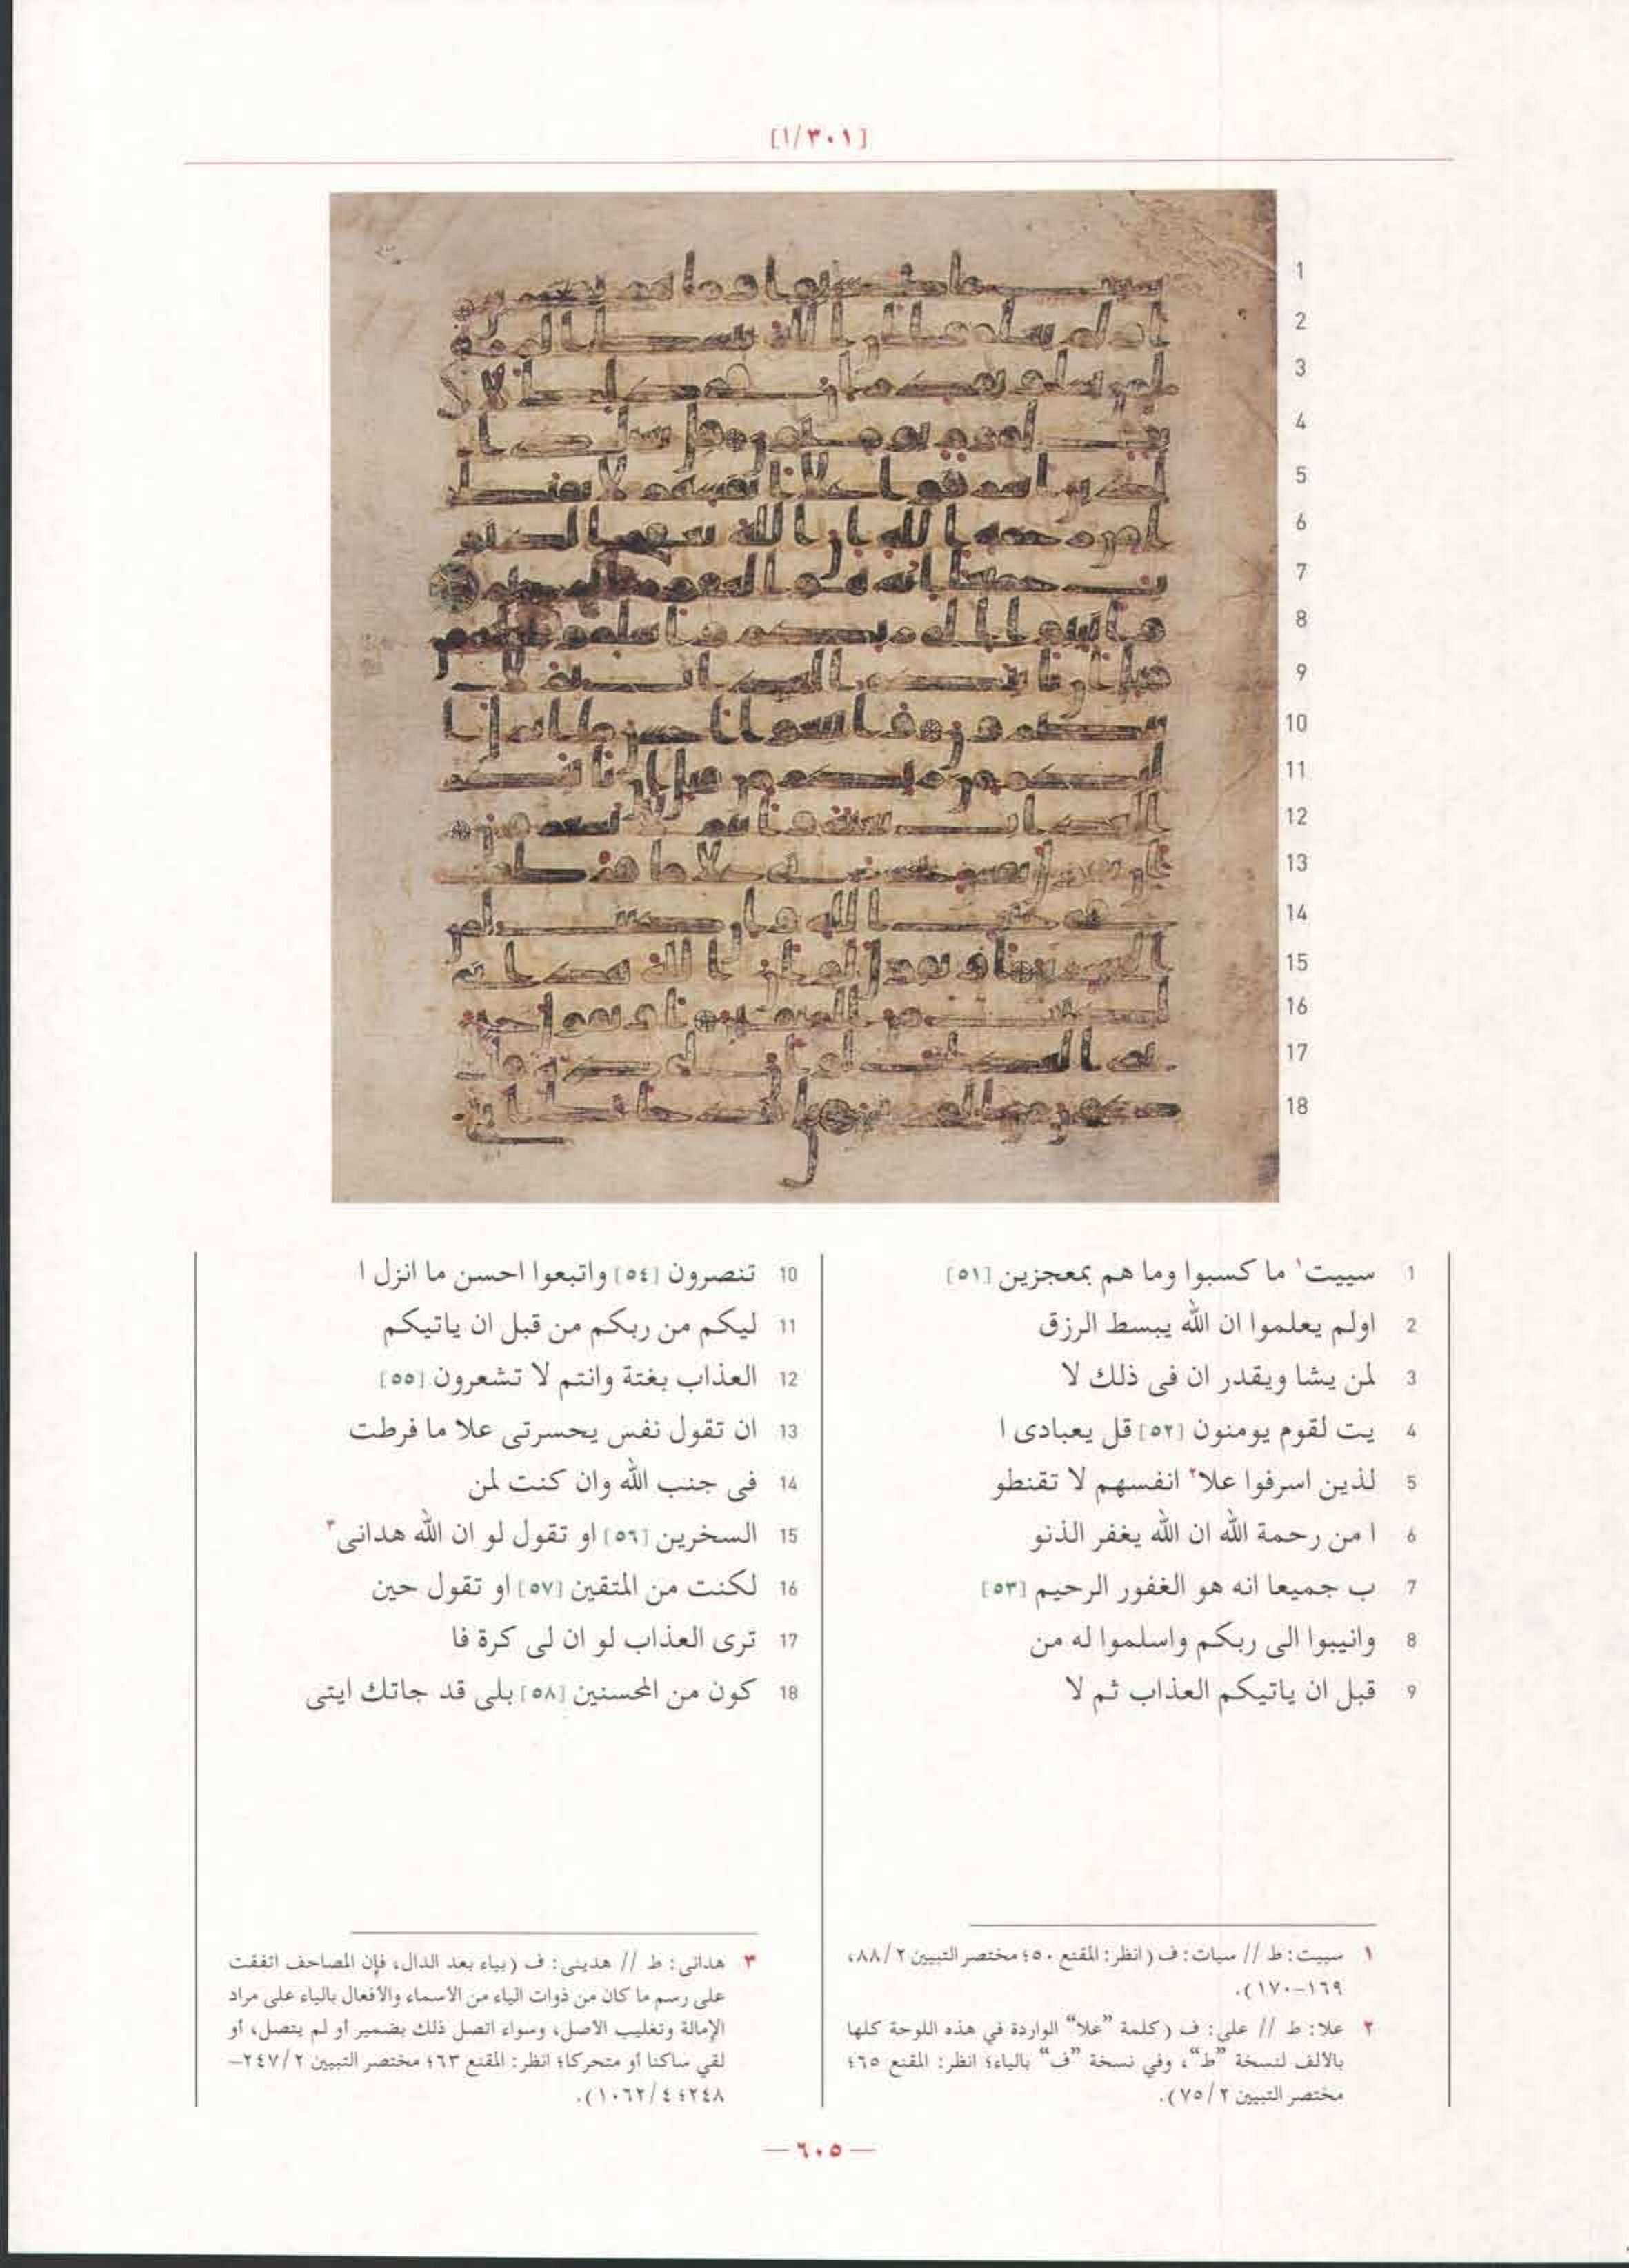 [٣٠١/١]
1 سييت١ ما كسبوا وما هم بمعجزين [٥١]
2 اولم يعلموا ان الله يبسط الرزق
3 لمن يشا ويقدر ان فى ذلك لا
4 يت لقوم يومنون [٥٢] قل يعبادى ا
5 لذين اسرفوا علا٢ انفسهم لا تقنطو
6 ا من رحمة الله ان الله يغفر الذنو
7 ب جميعا انه هو الغفور الرحيم [٥٣]
8 وانيبوا الى ربكم واسلموا له من
9 قبل ان ياتيكم العذاب ثم لا
10 تنصرون [٥٤] واتبعوا احسن ما انزل ا
11 ليكم من ربكم من قبل ان ياتيكم
12 العذاب بغتة وانتم لا تشعرون [٥٥]
13 ان تقول نفس يحسرتى علا ما فرطت
14 فى جنب الله وان كنت لمن
15 السخرين [٥٦] او تقول لو ان الله هدانى٣
16 لكنت من المتقين [٥٧] او تقول حين
17 ترى العذاب لو ان لى كرة فا
18 كون من المحسنين [٥٨] بلى قد جاتك ايتى
١ سييت: ط // سيات: ف (انظر: المقنع ٥٠؛ مختصر التبيين ٨٨/٢،
١٦٩-١٧٠).
٢ علا: ط // على: ف (كلمة ”علا“ الواردة في هذه اللوحة كلها
بالألف لنسخة ”ط“، وفي نسخة ”ف“ بالياء؛ انظر: المقنع ٦٥؛
مختصر التبيين ٧٥/٢).
٣ هدانى: ط // هدينى: ف (بياء بعد الدال، فإن المصاحف اتفقت
على رسم ما كان من ذوات الياء من الأسماء والأفعال بالياء على مراد
الإمالة وتغليب الأصل، وسواء اتصل ذلك بضمير أو لم يتصل، أو
لقي ساكنا أو متحركا؛ انظر: المقنع ٦٣؛ مختصر التبيين ٢٤٧/٢-
٢٤٨؛ ١٠٦٢/٤).
— ٦٠٥ —